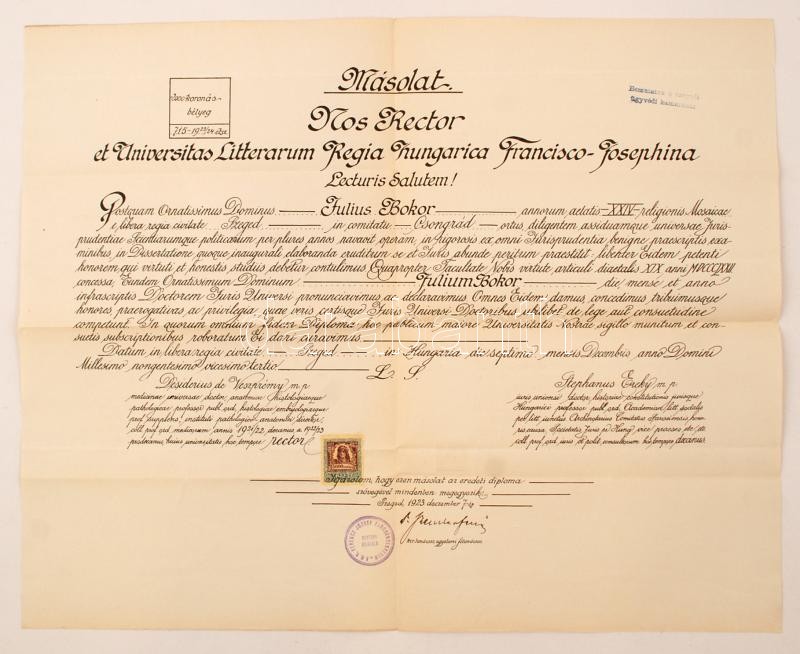 Másolat.
bélyeg
Nos Rector
et Universitas Litterarum Regia Hungarica Francisco-Josephina
Lecturis Salutem!
Postquam Ornatissimus Dominus Julius Bokor annorum aetatis XXIV religionis Mosaicae
e libera regia civitate Szeged in comitatu Csongrád ortus, diligentem assiduamque universae Juris-
prudentiae Scientiarumque politicarum per plures annos navavit operam, in rigorosis ex omni Jurisprudentia benigne praescriptis exa-
minibus, in Dissertatione quoque inaugurali elaboranda eruditum se et Juris abunde peritum praestitit: libenter Eidem petenti
honorem qui virtuti et honestis studiis debetur contulimus Quapropter Facultate Nobis virtute articuli diaetalis XIX anni
concessa, Eundem Ornatissimum Dominum Julium Bokor die mense et anno
infrascriptis Doctorem Juris Universi pronunciavimus ac declaravimus Omnes Eidem damus, concedimus tribuimusque
honores praerogativas ac privilegia, quae veris certisque Juris Universi Doctoribus ubilibet de lege aut consuetudine
competunt. In quorum omnium fidem Diploma hoc publicum majore Universitatis Nostrae sigillo munitum et con-
suetis subscriptionibus roboratum Ei dari curavimus.
Datum in libera regia civitate Szeged in Hungaria die septimo mensis Decembris anno Domini
Millesimo nongentesimo vicesimo tertio. L. S.
Desiderius de Veszprémy m p
medicinae universae doctor, anatomiae histologiaeque
pathologicae professor publ. ord., histologiae embryologiaeque
prof. instituti pathologici anatomici director,
coll. prof. ord. medicorum annis 1921/22 decanus a 1922/23
prodecanus, huius universitatis hoc tempore rector
Stephanus Ereky m p
juris universi doctor, historiae constitutionis jurisque
Hungarici professor publ. ord.
coll. prof. ord. juris et polit. hoc tempore decanus
Igazolom, hogy ezen másolat az eredeti diploma
szövegével mindenben megegyezik.
Szeged, 1923 december 7-én